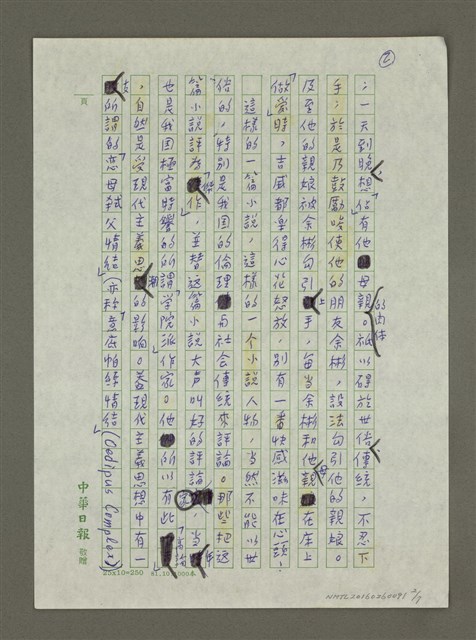 ②
；一天到晚想佔有他母親的肉体。祇以碍於世俗傳統，不忍下
手；於是乃鼓勵唆使他的朋友余彬，設法勾引他的親娘。
及至他的親娘被余彬勾引上手，每當余彬和他親母在床上
「做愛」時，吉威都樂得心花怒放，別有一番快感滋味在心頭！
這樣的一篇小說，這樣的一个小說人物，当然不能以世
俗的，特別是我国的倫理与社会傳統來評論。那些把这
篇小說評為「傑作」，並替这篇小說大声叫好的評論家，当
也是我国極富時譽的所謂「学院派作家」。他所以有此
，自然是受現代主義思潮的影响。蓋現代主義思想中有一
支所謂的「恋母弒父情結」（亦称意底帕絲情結」(Oedipus Complex)
頁
中華日報 敬贈
25x10=250
NMTL20160260091 2/7